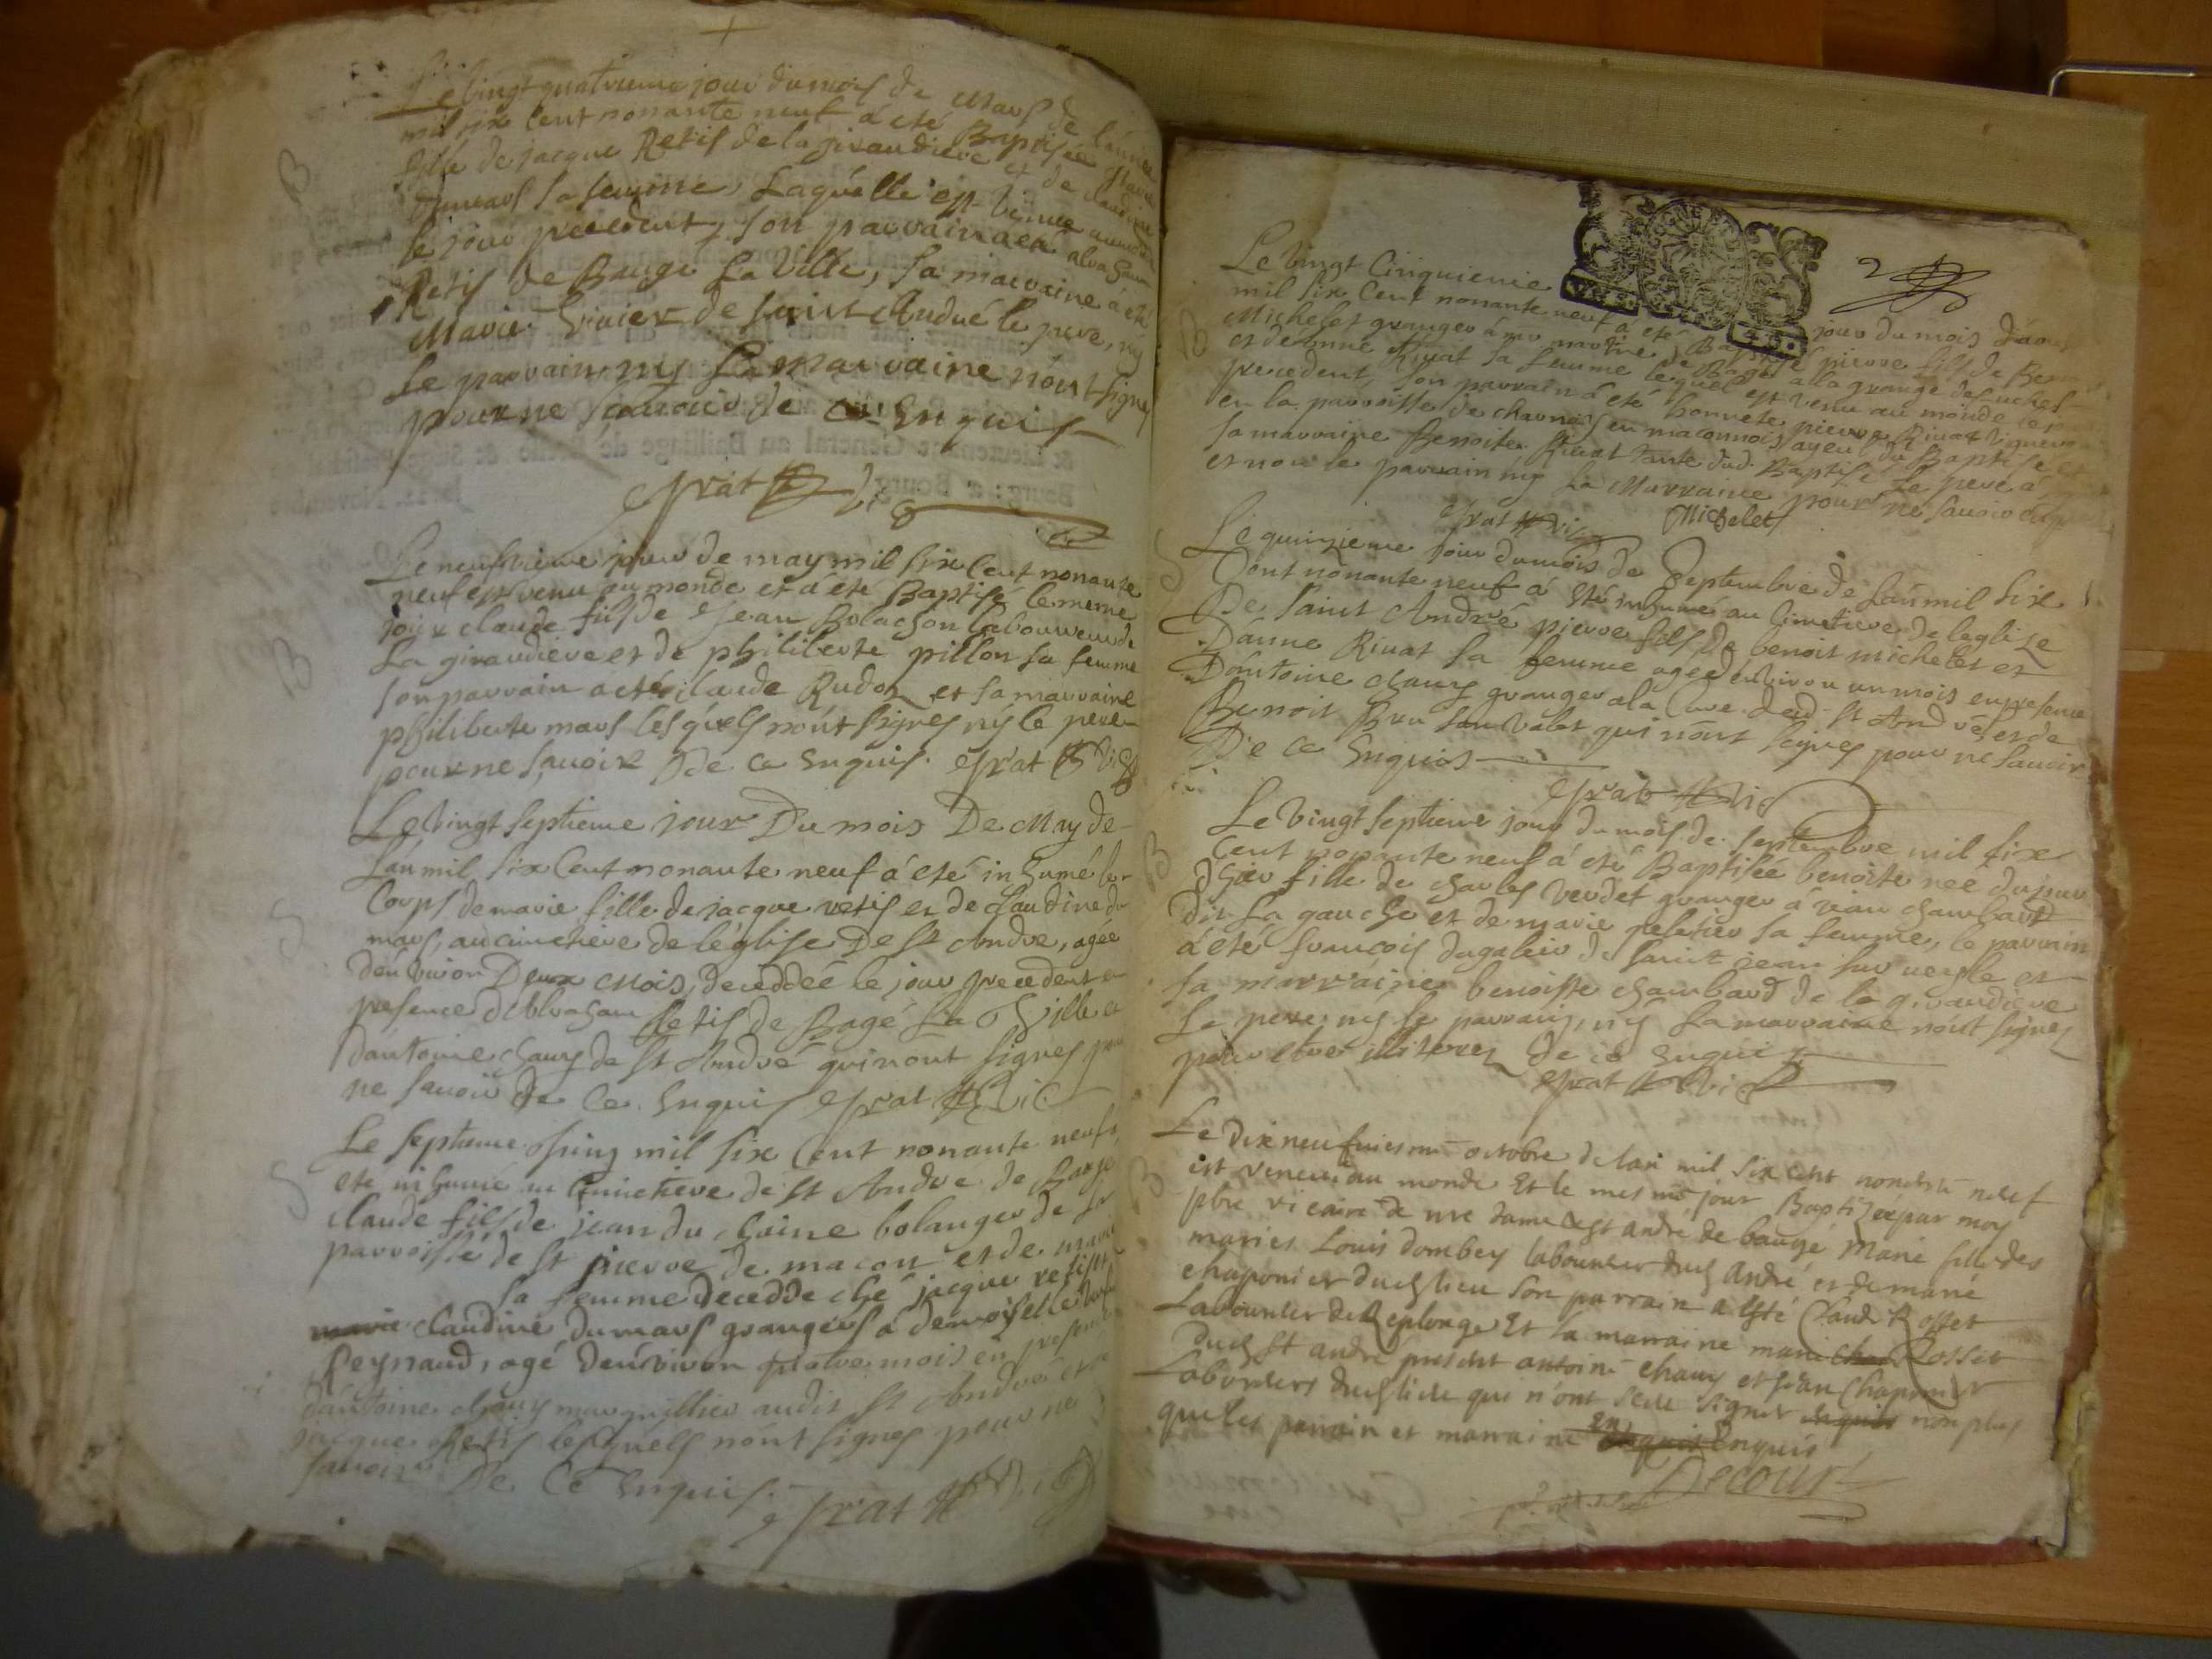 Le vingt quatrieme jour du mois de Mars de l'annee
mil six cent nonante neuf á eté Baptisée Marie
fille de jacque Retif de la giraudiere et de claudine
dumars sa femme, Laquelle est venue au monde
le jour precedent, son parrain a eté abraham
Retif de Baugé La Ville, sa marraine á eté
Marie Vivier de saint André le pere, ny
Le parrain, ny La marraine n'ont signé
pour ne scavoir de ce Enquis
Prat vic
Le neufvieme jour de may mil six cent nonante
neuf est venu au monde et á eté Baptisé le meme
jour claude fils de Jean Bolachon laboureur de
La giraudiere et de philiberte pillon sa femme
son parrain a eté claude Rudon et sa marraine
philiberte mars lesquels n'ont signes ny le pere
pour ne scavoir De ce Enquis. Prat vic
Le vingt septieme jour Du mois De May de
l'an mil six Cent nonante neuf á eté inhumé le
Corps de marie fille de jacque retif et de Claudine du
mars, au cimetiere de léglise De St Andre, agee
d'environ Deux Mois, deceddée le jour precedent en
presence d'Abraham Retif de Bagé La Ville et
d'antoine chaux de St André qui n'ont signes pour
ne savoir De Ce Enquis Prat vic
Le septieme juing mil six Cent nonante neuf a
eté inhumé au Cimetiere de St Andre de Baugé
claude fils de jean du chaine bolanger de la
parroisse de St pierre de macon et de marie
sa femme decedde ché jacque retif et
marie Claudine Dumars grangers á demoiselle
Reynaud, agé d'environ quatre mois en presence
d'antoine chaux marguillier audit St André et de
jacque Retif lesquels n'ont signes pour ne
savoir De Ce Enquis. Prat vic
2
Le Vingt Cinquieme jour du mois d'aoust
mil six Cent nonante neuf á eté Baptisé pierre fils de Benoit
Michelet granger á la grange
et de anne Rivat sa femme lequel est venu au monde le jour
precedent, son parrain á eté honnete pierre Rivat vigneron
en la parroisse de charnay en maconnois ayeul du Baptisé et
sa marraine Benoite Rivat tante dud. Baptisé Le pere á
et non le parrain ny La Marraine pour ne savoir enquis
Prat vic Michelet
Le quinzieme jour du mois de Septembre de l'an mil six
Cent nonante neuf á eté inhumé au Cimetiere de léglise
De saint André pierre fils de benoit michelet et
D'anne Rivat sa femme agé d'environ un mois en presence
D'antoine chaux granger a la Cure dud. St André et de
Benoit Bru son valet qui n'ont signes pour ne savoir
De ce Enquis
Prat vic
Le Vingt septieme jour du mois de septembre mil six
Cent nonante neuf á eté Baptisée benoite neé du jour
d'hier fille de charles Verdet granger á jean chambard
dit La gauche et de marie peletier sa femme, le parrain
á eté francois dagalier de saint jean sur veyle et
sa marraine benoiste chambard de la giraudiere
Le pere, ny le parrain, ny La marraine n'ont signes
pour etre illiteres De ce Enquis
Prat vic
Le Dix neufviesme octobre de lan mil six cent nonente neuf
est veneue au monde Et le mesme jour Baptizée par moy
pbre vicaire de nre dame et St andré de baugé Marie fille des
maries Louis dombey laboureur dud St André et de marie
chaponier dud lieu Son parrain a esté Claude Rosset
Laboureur de Replonge Et la marraine marie Rosset
dud St andré present antoine chaux et jean Chaponier
Laboureurs dud lieu qui n'ont sceu signer non plus
que les parrain et marraine Enquis
Decourt